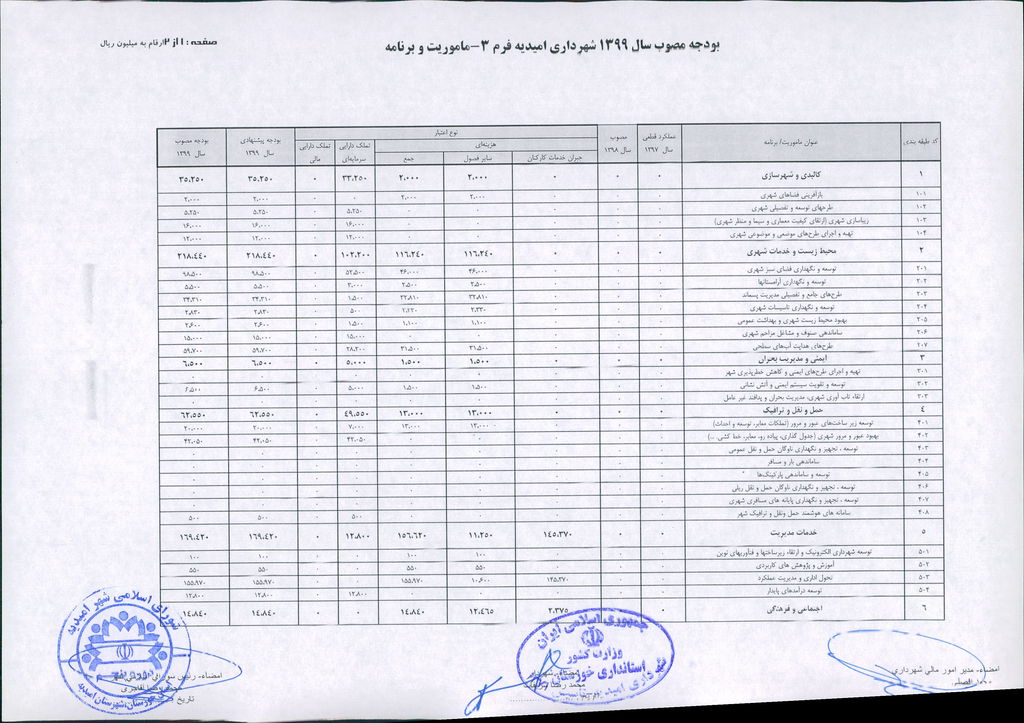 بودجه مصوب سال ۱۳۹۹ شهرداری امیدیه فرم ۳-ماموریت و برنامه
صفحه : ۱ از ۲ ارقام به میلیون ریال
کد طبقه بندی | عنوان ماموریت/ برنامه | عملکرد قطعی سال ۱۳۹۷ | مصوب سال ۱۳۹۸ | نوع اعتبار | بودجه پیشنهادی سال ۱۳۹۹ | بودجه مصوب سال ۱۳۹۹
هزینه‌ای | تملک دارایی سرمایه‌ای | تملک دارایی مالی
جبران خدمات کارکنان | سایر فصول | جمع
۱ کالبدی و شهرسازی ۰ ۰ ۰ ۲،۰۰۰ ۲،۰۰۰ ۳۳،۲۵۰ ۰ ۳۵،۲۵۰ ۳۵،۲۵۰
۱۰۱ بازآفرینی فضاهای شهری ۰ ۰ ۰ ۲،۰۰۰ ۲،۰۰۰ ۰ ۰ ۲،۰۰۰ ۲،۰۰۰
۱۰۲ طرحهای توسعه و تفصیلی شهری ۰ ۰ ۰ ۰ ۰ ۵،۲۵۰ ۰ ۵،۲۵۰ ۵،۲۵۰
۱۰۳ زیباسازی شهری (ارتقای کیفیت معماری و سیما و منظر شهری) ۰ ۰ ۰ ۰ ۰ ۱۶،۰۰۰ ۰ ۱۶،۰۰۰ ۱۶،۰۰۰
۱۰۴ تهیه و اجرای طرح‌های موضعی و موضوعی شهری ۰ ۰ ۰ ۰ ۰ ۱۲،۰۰۰ ۰ ۱۲،۰۰۰ ۱۲،۰۰۰
۲ محیط زیست و خدمات شهری ۰ ۰ ۰ ۱۱۶،۲۴۰ ۱۱۶،۲۴۰ ۱۰۲،۲۰۰ ۰ ۲۱۸،۴۴۰ ۲۱۸،۴۴۰
۲۰۱ توسعه و نگهداری فضای سبز شهری ۰ ۰ ۰ ۴۶،۰۰۰ ۴۶،۰۰۰ ۵۲،۵۰۰ ۰ ۹۸،۵۰۰ ۹۸،۵۰۰
۲۰۲ توسعه و نگهداری آرامستانها ۰ ۰ ۰ ۲،۵۰۰ ۲،۵۰۰ ۳،۰۰۰ ۰ ۵،۵۰۰ ۵،۵۰۰
۲۰۳ طرح‌های جامع و تفصیلی مدیریت پسماند ۰ ۰ ۰ ۳۲،۸۱۰ ۳۲،۸۱۰ ۱،۵۰۰ ۰ ۳۴،۳۱۰ ۳۴،۳۱۰
۲۰۴ توسعه و نگهداری تاسیسات شهری ۰ ۰ ۰ ۲،۳۳۰ ۲،۳۳۰ ۵۰۰ ۰ ۲،۸۳۰ ۲،۸۳۰
۲۰۵ بهبود محیط زیست شهری و بهداشت عمومی ۰ ۰ ۰ ۱،۱۰۰ ۱،۱۰۰ ۱،۵۰۰ ۰ ۲،۶۰۰ ۲،۶۰۰
۲۰۶ ساماندهی صنوف و مشاغل مزاحم شهری ۰ ۰ ۰ ۰ ۰ ۱۵،۰۰۰ ۰ ۱۵،۰۰۰ ۱۵،۰۰۰
۲۰۷ طرح‌های هدایت آب‌های سطحی ۰ ۰ ۰ ۳۱،۵۰۰ ۳۱،۵۰۰ ۲۸،۲۰۰ ۰ ۵۹،۷۰۰ ۵۹،۷۰۰
۳ ایمنی و مدیریت بحران ۰ ۰ ۰ ۱،۵۰۰ ۱،۵۰۰ ۵،۰۰۰ ۰ ۶،۵۰۰ ۶،۵۰۰
۳۰۱ تهیه و اجرای طرح‌های ایمنی و کاهش خطرپذیری شهر ۰ ۰ ۰ ۰ ۰ ۰ ۰ ۰ ۰
۳۰۲ توسعه و تقویت سیستم ایمنی و آتش نشانی ۰ ۰ ۰ ۱،۵۰۰ ۱،۵۰۰ ۵،۰۰۰ ۰ ۶،۵۰۰ ۶،۵۰۰
۳۰۳ ارتقاء تاب آوری شهری، مدیریت بحران و پدافند غیر عامل ۰ ۰ ۰ ۰ ۰ ۰ ۰ ۰ ۰
۴ حمل و نقل و ترافیک ۰ ۰ ۰ ۱۳،۰۰۰ ۱۳،۰۰۰ ۴۹،۵۵۰ ۰ ۶۲،۵۵۰ ۶۲،۵۵۰
۴۰۱ توسعه زیر ساخت‌های عبور و مرور (تملکات معابر، توسعه و احداث) ۰ ۰ ۰ ۱۳،۰۰۰ ۱۳،۰۰۰ ۷،۰۰۰ ۰ ۲۰،۰۰۰ ۲۰،۰۰۰
۴۰۲ بهبود عبور و مرور شهری (جدول گذاری، پیاده رو، معابر، خط کشی ...) ۰ ۰ ۰ ۰ ۰ ۴۲،۰۵۰ ۰ ۴۲،۰۵۰ ۴۲،۰۵۰
۴۰۳ توسعه ، تجهیز و نگهداری ناوگان حمل و نقل عمومی ۰ ۰ ۰ ۰ ۰ ۰ ۰ ۰ ۰
۴۰۴ ساماندهی بار و مسافر ۰ ۰ ۰ ۰ ۰ ۰ ۰ ۰ ۰
۴۰۵ توسعه و ساماندهی پارکینگ‌ها ۰ ۰ ۰ ۰ ۰ ۰ ۰ ۰ ۰
۴۰۶ توسعه ، تجهیز و نگهداری ناوگان حمل و نقل ریلی ۰ ۰ ۰ ۰ ۰ ۰ ۰ ۰ ۰
۴۰۷ توسعه ، تجهیز و نگهداری پایانه های مسافری شهری ۰ ۰ ۰ ۰ ۰ ۰ ۰ ۰ ۰
۴۰۸ سامانه های هوشمند حمل ونقل و ترافیک شهر ۰ ۰ ۰ ۰ ۰ ۵۰۰ ۰ ۵۰۰ ۵۰۰
۵ خدمات مدیریت ۰ ۰ ۱۴۵،۳۷۰ ۱۱،۲۵۰ ۱۵۶،۶۲۰ ۱۲،۸۰۰ ۰ ۱۶۹،۴۲۰ ۱۶۹،۴۲۰
۵۰۱ توسعه شهرداری الکترونیک و ارتقاء زیرساختها و فنآوریهای نوین ۰ ۰ ۰ ۱۰۰ ۱۰۰ ۰ ۰ ۱۰۰ ۱۰۰
۵۰۲ آموزش و پژوهش های کاربردی ۰ ۰ ۰ ۵۵۰ ۵۵۰ ۰ ۰ ۵۵۰ ۵۵۰
۵۰۳ تحول اداری و مدیریت عملکرد ۰ ۰ ۱۴۵،۳۷۰ ۱۰،۶۰۰ ۱۵۵،۹۷۰ ۰ ۰ ۱۵۵،۹۷۰ ۱۵۵،۹۷۰
۵۰۴ توسعه درآمدهای پایدار ۰ ۰ ۰ ۰ ۰ ۱۲،۸۰۰ ۰ ۱۲،۸۰۰ ۱۲،۸۰۰
۶ اجتماعی و فرهنگی ۰ ۰ ۲،۳۷۵ ۱۲،۴۶۵ ۱۴،۸۴۰ ۰ ۰ ۱۴،۸۴۰ ۱۴،۸۴۰
امضاء- مدیر امور مالی شهرداری
جمهوری اسلامی ایران
وزارت کشور
استانداری خوزستان
محمد رضا
شورای اسلامی شهر امیدیه
امضاء- رئیس شورای
تاریخ
خوزستان-شهرستان امیدیه